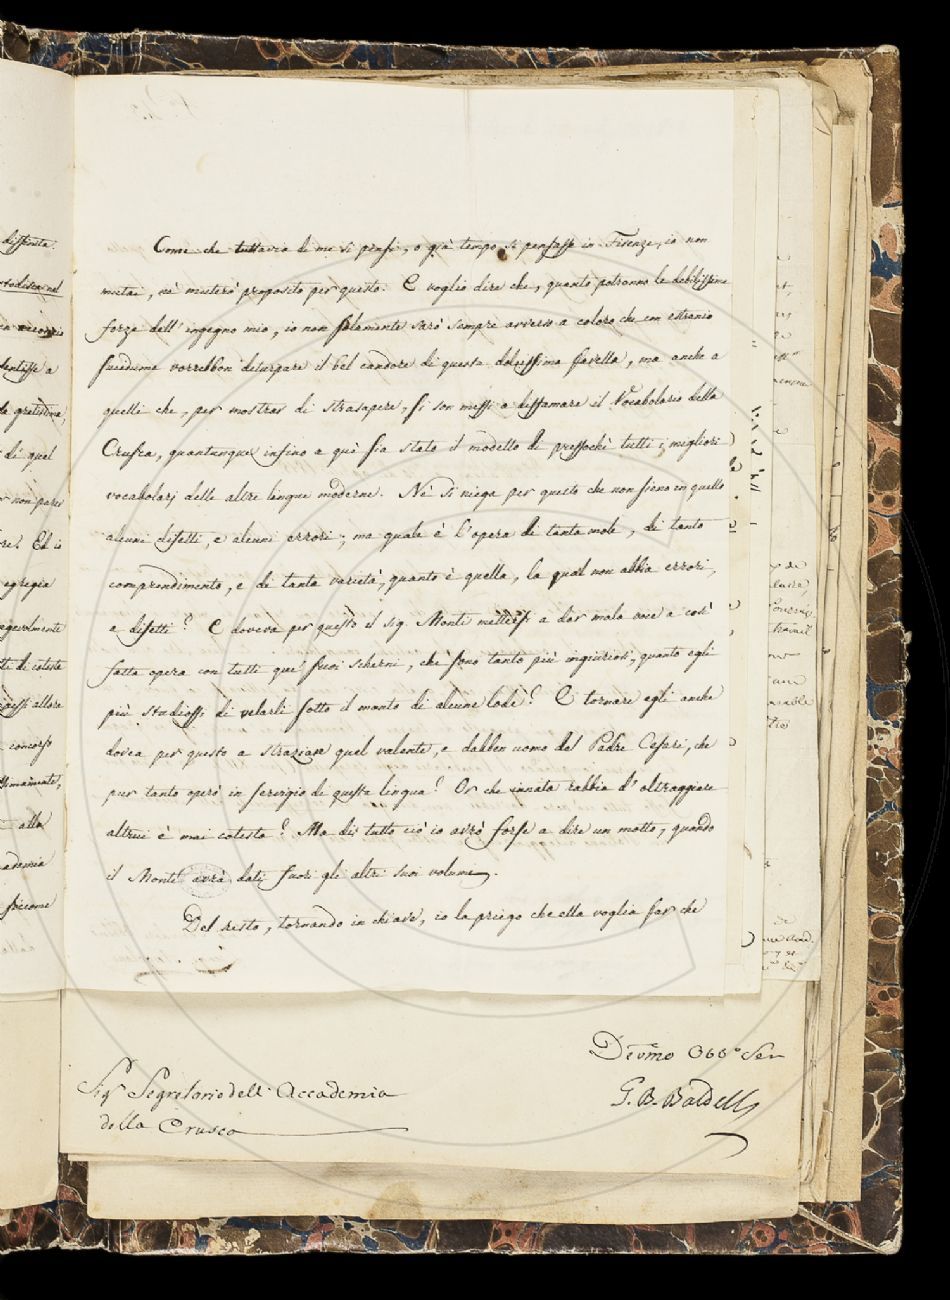 Come che tuttavia di me si pensi, o già tempo si pensasse in Firenze, io non
mutai, nè muterò proposito per questo. E voglio dire che, quanto potranno le debilissime
forze dell' ingegno mio, io non solamente sarò sempre avverso a coloro che con estranio
sucidume vorrebbon deturpare il bel candore di questa dolcissima favella, ma anche a
quelli che, per mostrar di strasapere, si son messi a diffamare il Vocabolario della
Crusca, quantunque infino a quì sia stato il modello di pressochè tutti i migliori
vocabolarj delle altre lingue moderne. Nè si niega per questo che non sieno in quello
alcuni difetti, e alcuni errori; ma quale è l'opera di tanta mole, di tanto
comprendimento, e di tanta varietà, quanto è quella, la qual non abbia errori,
e difetti? E doveva per questo il sig. Monti mettersi a dar mala voce a così
fatta opera con tutti que' suoi scherni, che sono tanto più ingiuriosi, quanto egli
più studiossi di velarli sotto il manto di alcune lodi? E tornare egli anche
dovea per questo a straziare quel valente, e dabben uomo del Padre Cesari, che
pur tanto operò in servigio di questa lingua? Or che innata rabbia d'oltraggiare
altrui è mai cotesta? Ma di tutto ciò io avrò forse a dire un motto, quando
il Monti avrà dati fuori gli altri suoi volumi.
Del resto, tornando in chiave, io la priego che ella voglia far che
Devmo Obbo Ser
G. B. Baldelli
Sigr Segretario dell' Accademia
della Crusca